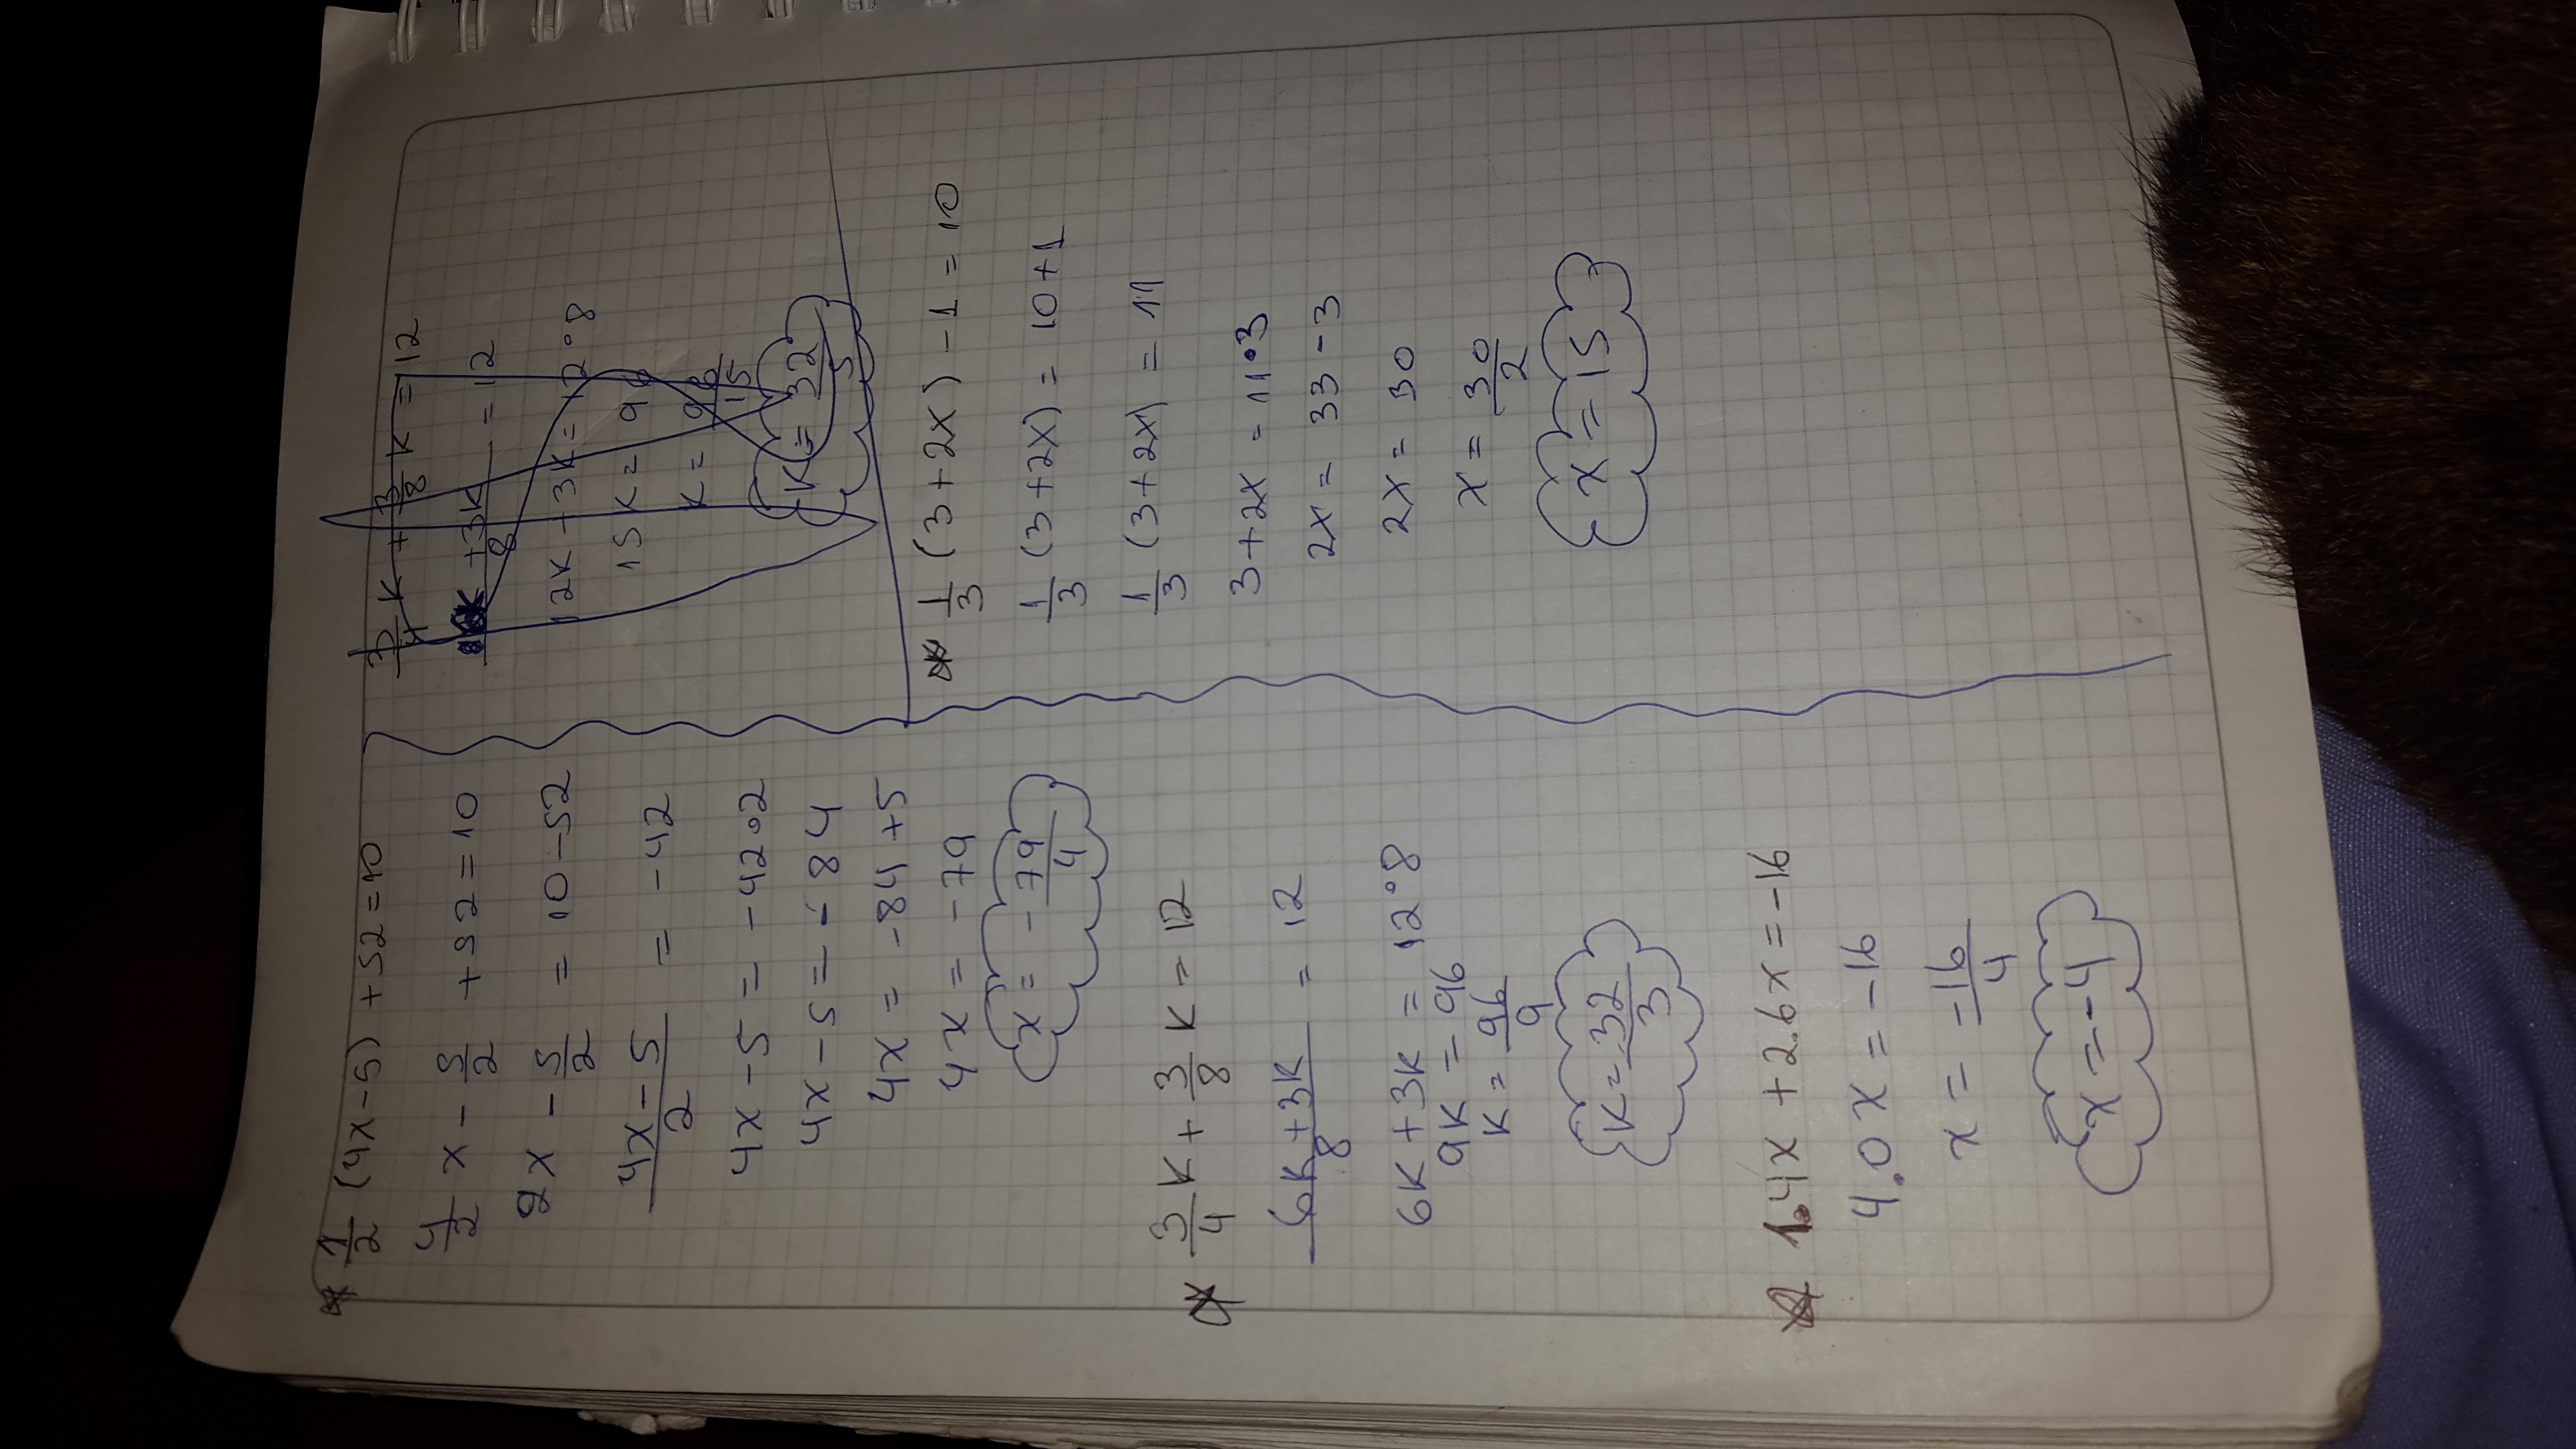 * 1/2 (4x-5) +52=10
4/2 x - 5/2 +52=10
2x - 5/2 = 10-52
(4x-5)/2 = -42
4x-5 = -42•2
4x-5=-84
4x = -84+5
4x = -79
x = -79/4
* 3/4 K + 3/8 K = 12
(6K+3K)/8 = 12
6K+3K = 12•8
9K = 96
K = 96/9
K = 32/3
* 1.4x + 2.6x = -16
4.0x = -16
x = -16/4
x = -4
3/4 K + 3/8 K = 12
+3K/8 = 12
12K + 3K = 12•8
15K = 96
K = 96/15
K = 32/5
* 1/3 (3+2x) -1 = 10
1/3 (3+2x) = 10+1
1/3 (3+2x) = 11
3+2x = 11•3
2x = 33-3
2x = 30
x = 30/2
x = 15